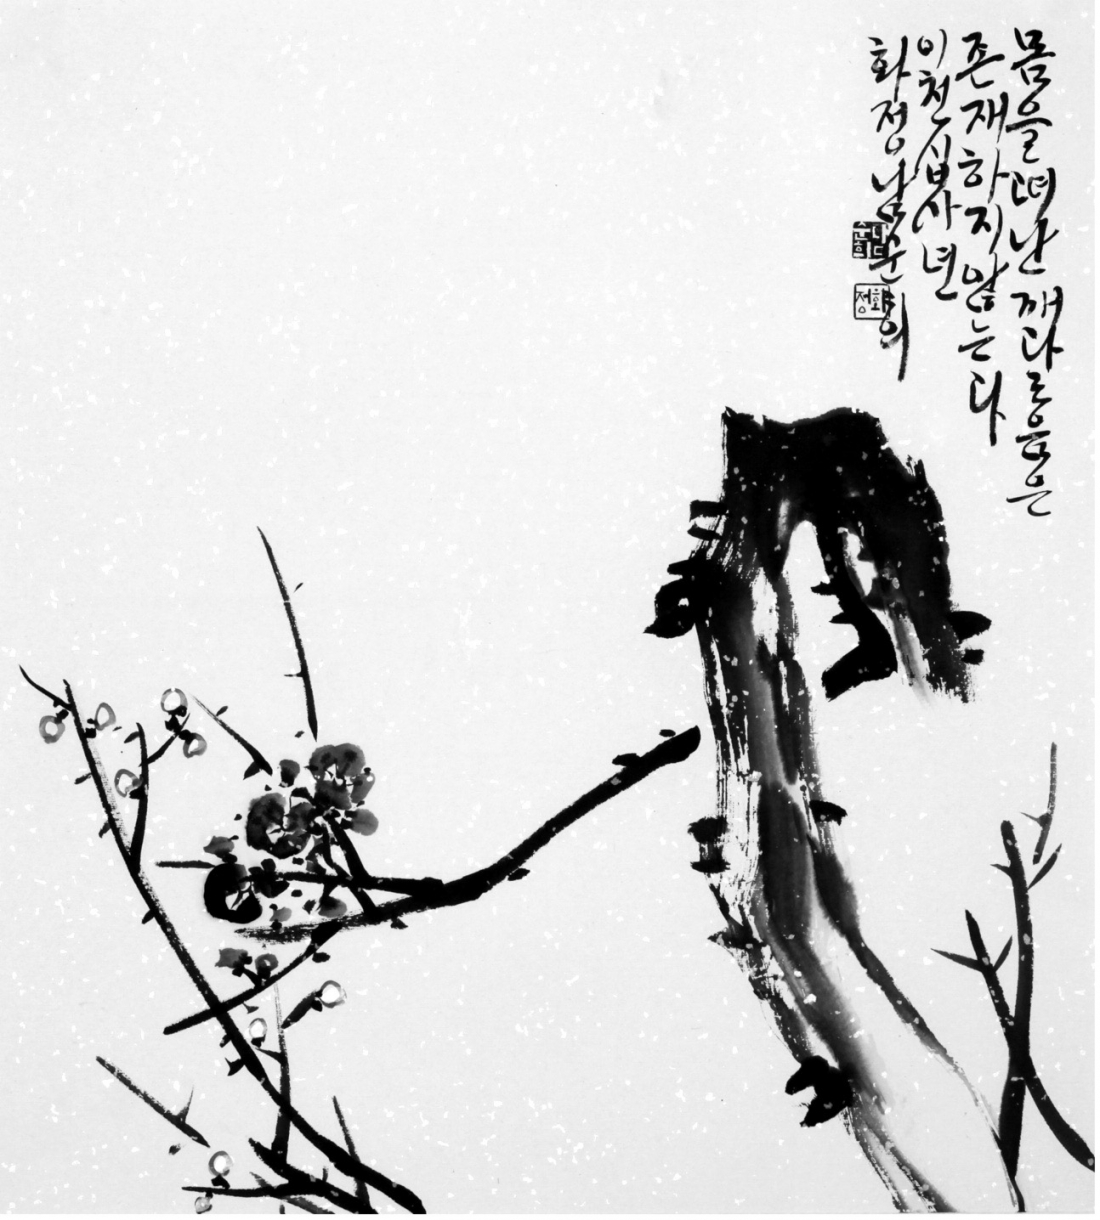 몸을 떠난 깨달음은
존재하지 않는다
이천십사년
화정 남순희
남순희
화정